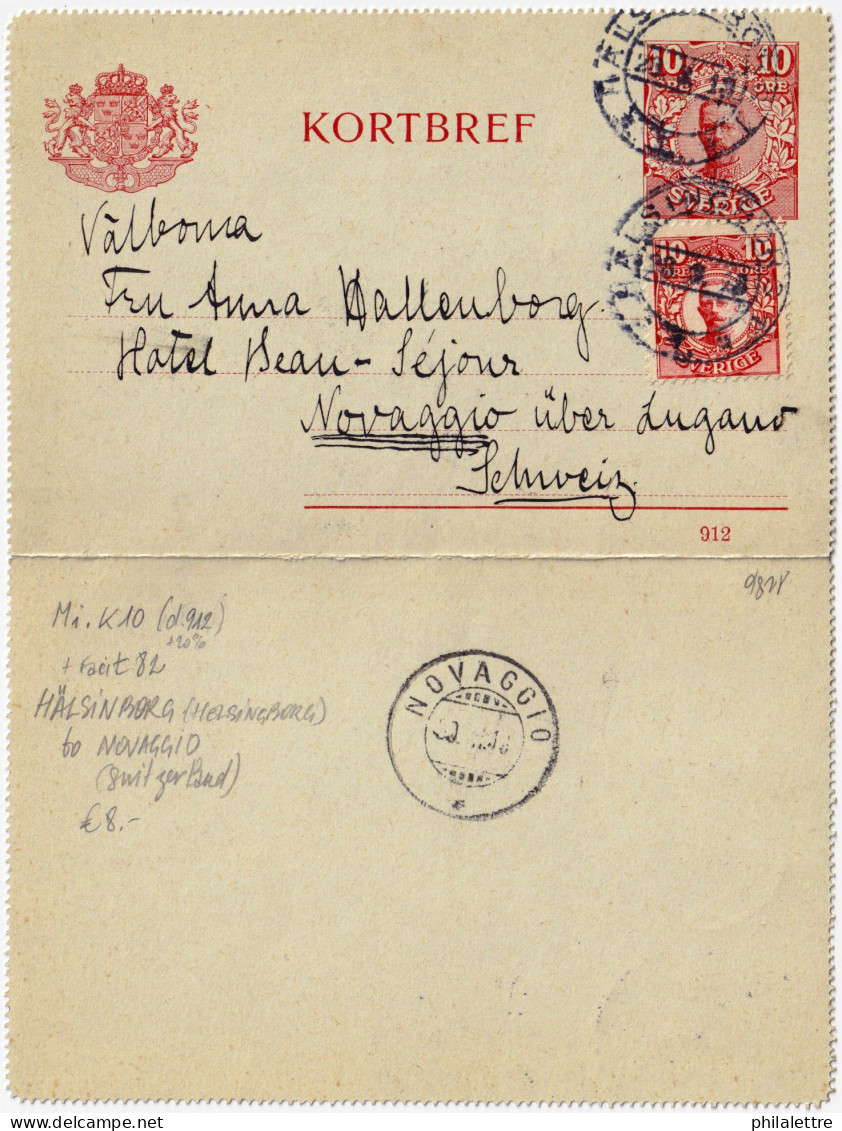 KORTBREF
10 10
ÖRE ÖRE
SVERIGE
HÄLSINGBORG
10 10
ÖRE ÖRE
SVERIGE
HÄLSINGBORG
Välborna
Fru Anna Wallenborg
Hotel Beau-Séjour
Novaggio über Lugano
Schweiz
912
Mi. K10 (d.912)
+20%
+ Facit 82
HÄLSINBORG (HELSINGBORG)
to NOVAGGIO
(Switzerland)
€8.-
NOVAGGIO
philalettre